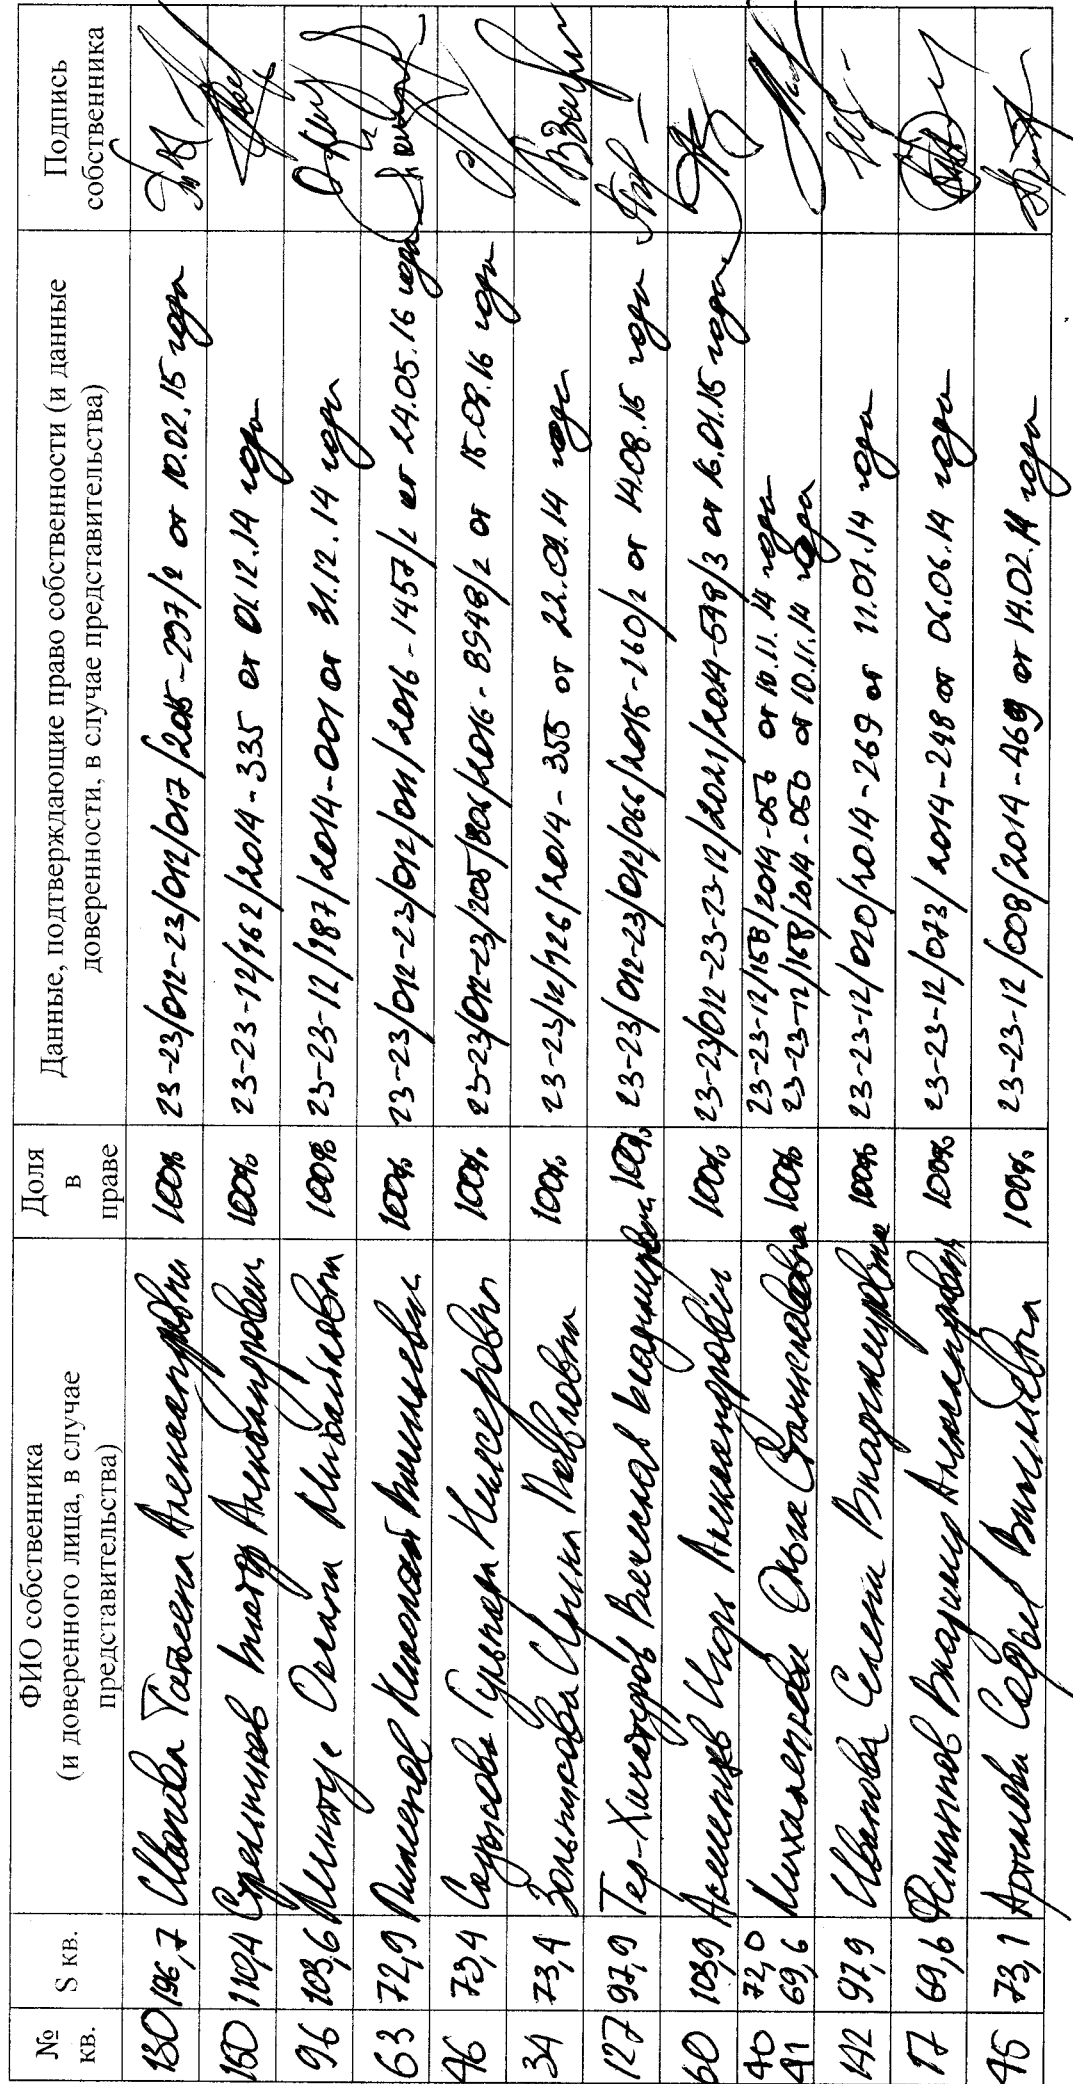 № кв.
S кв.
ФИО собственника
(и доверенного лица, в случае
представительства)
Доля
в
праве
Данные, подтверждающие право собственности (и данные
доверенности, в случае представительства)
Подпись
собственника
130 196,7 Иванова Татьяна Александровна 100% 23-23/012-23/012/017/2015-297/2 от 10.02.15 года
160 110,4 Стрельников Виктор Александрович 100% 23-23-12/162/2014-335 от 01.12.14 года
96 103,6 Оксана Михайловна 100% 23-23-12/187/2014-001 от 31.12.14 года
63 72,9 Пименов Николай Васильевич 100% 23-23/012-23/012/011/2016-1457/2 от 24.05.16 года
46 73,4 Гульнара 100% 23-23/012-23/205/806/2016-8948/2 от 15.08.16 года
34 73,4 Зольникова Ирина Павловна 100% 23-23/12/126/2014-355 от 22.09.14 года
127 97,9 Тер-Хачатуров Вячеслав Владимирович 100% 23-23/012-23/012/066/2015-160/2 от 14.08.15 года
60 103,9 Игорь Александрович 100% 23-23/012-23-23-12/2021/2014-598/3 от 16.01.15 года
40 72,0 Ольга Станиславовна 100% 23-23-12/158/2014-056 от 10.11.14 года
41 69,6 23-23-12/158/2014-050 от 10.11.14 года
142 97,9 Иванова Елена Владимировна 100% 23-23-12/020/2014-269 от 11.07.14 года
17 69,6 Филиппов Владимир Александрович 100% 23-23-12/073/2014-248 от 06.06.14 года
45 73,1 Васильевна 100% 23-23-12/008/2014-469 от 14.02.14 года